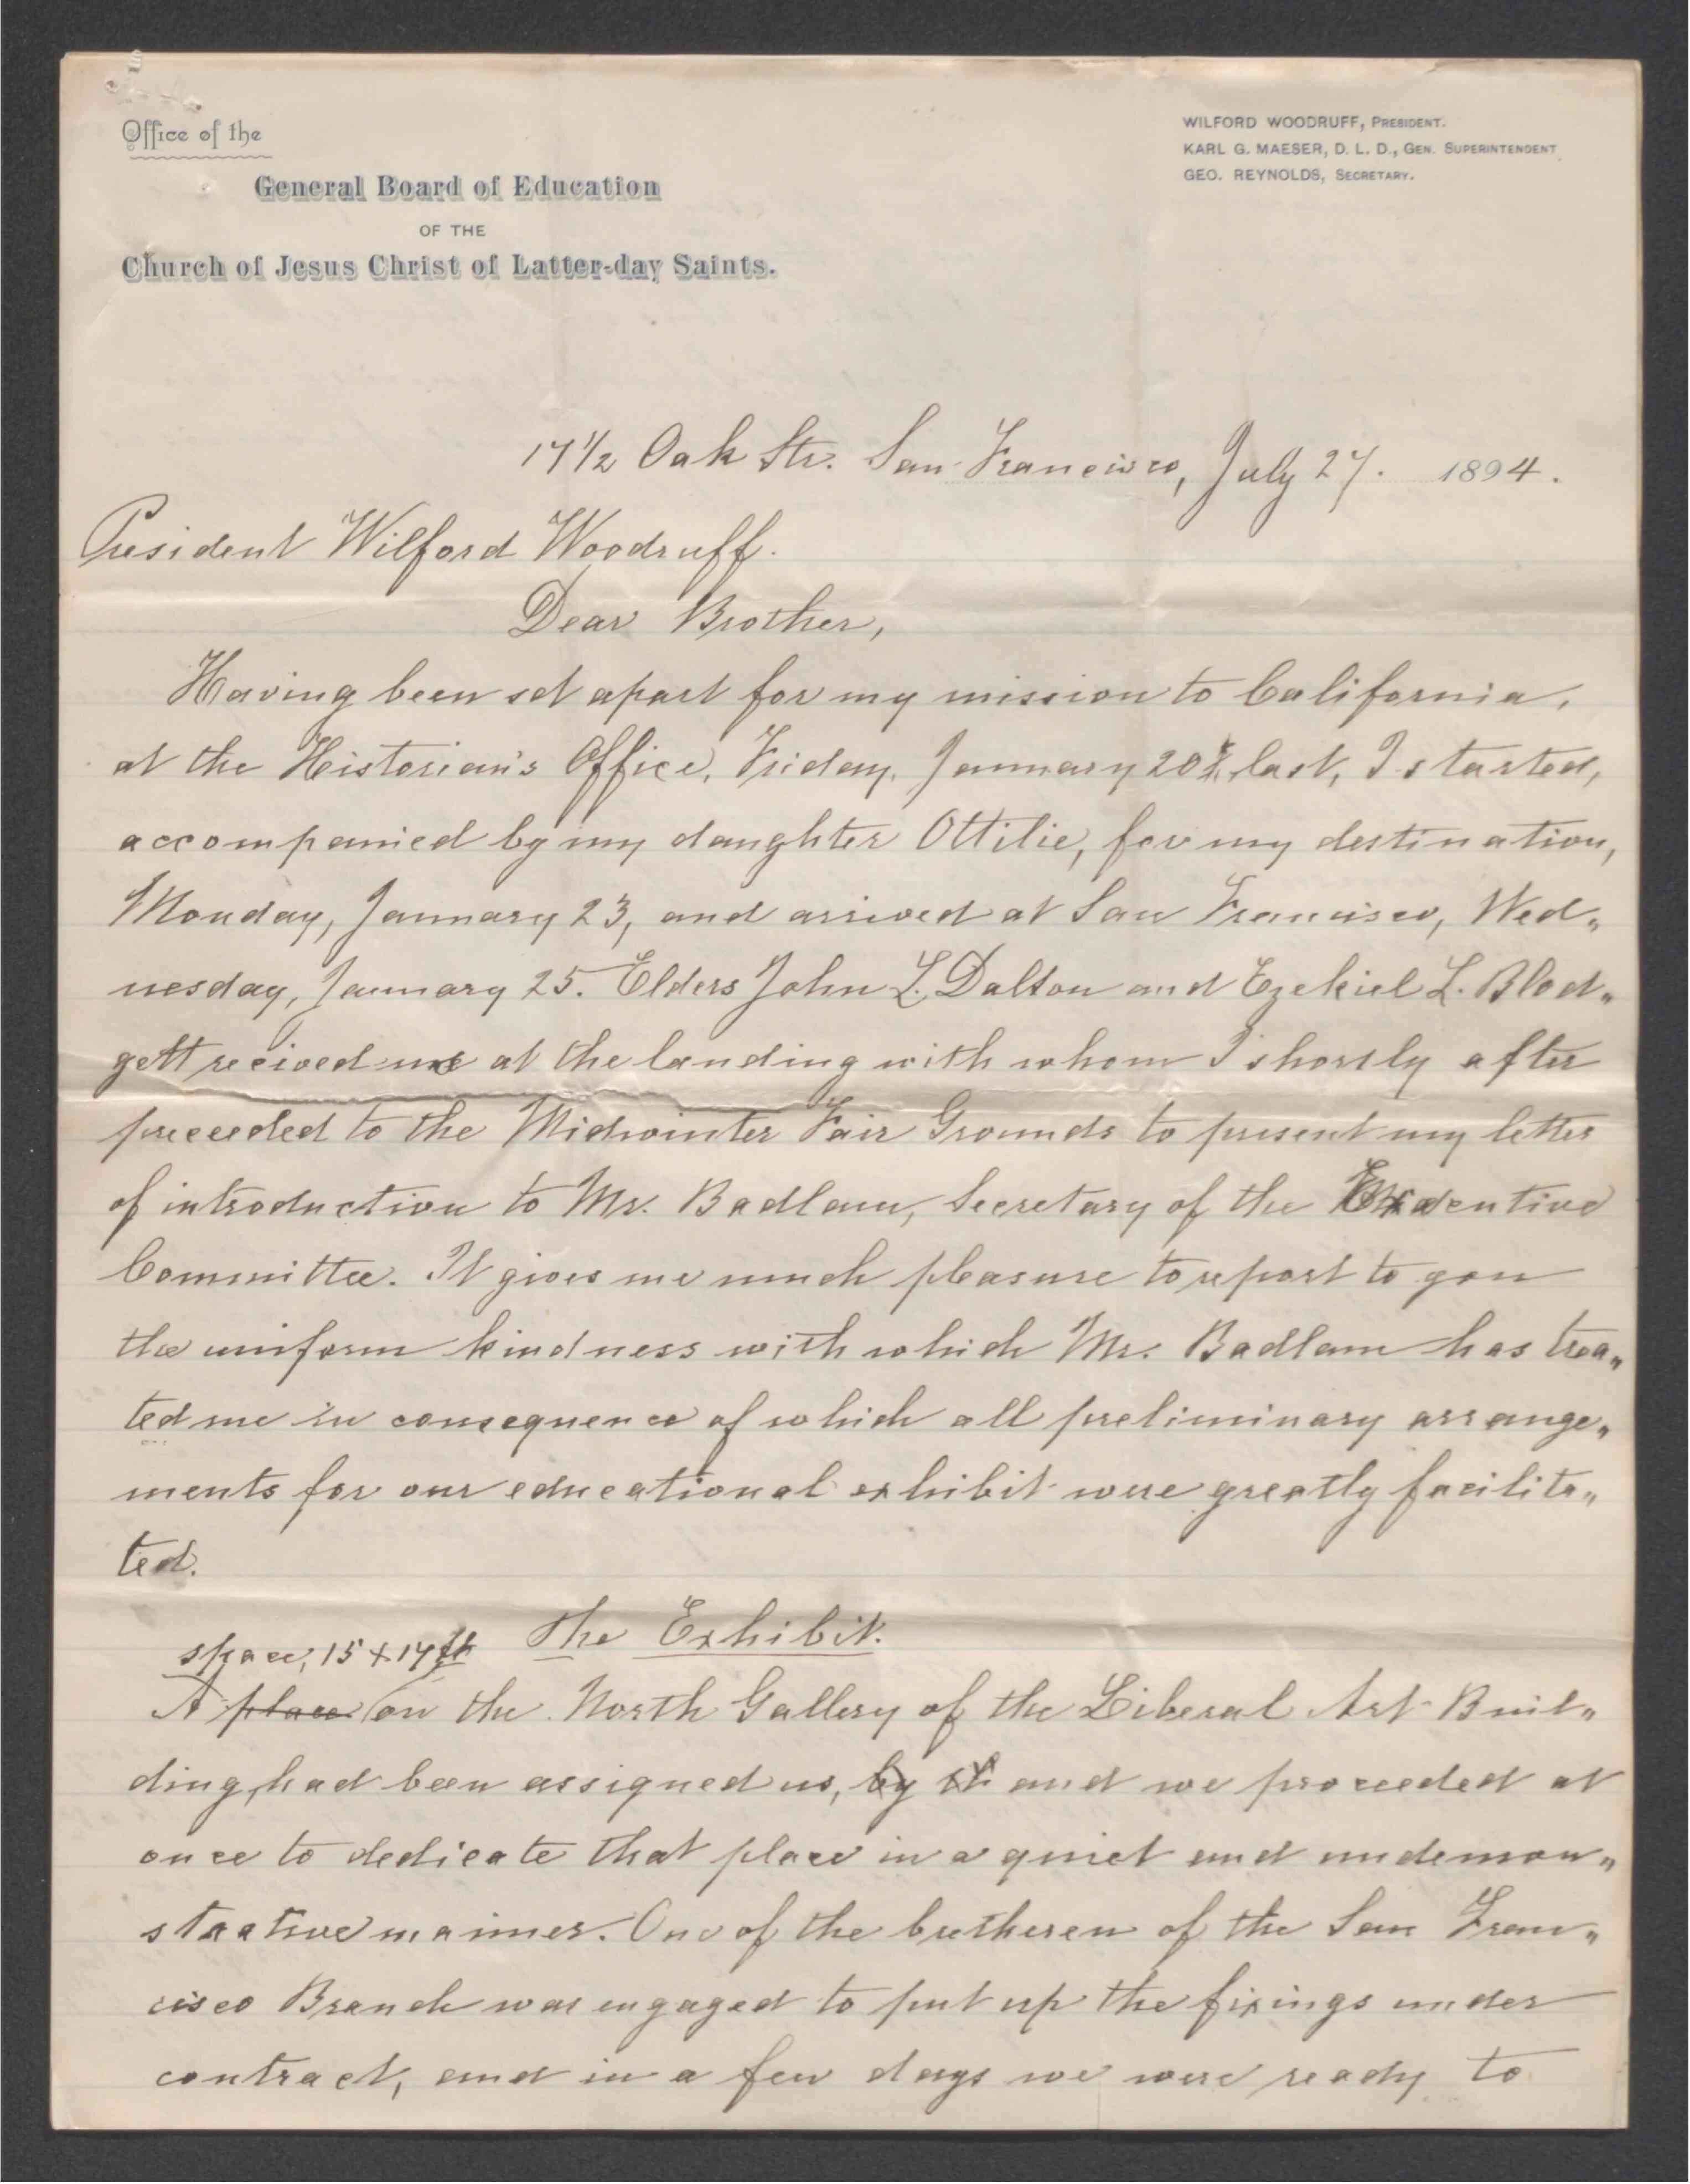 Office of the
General Board of Education
OF THE
Church of Jesus Christ of Latter-day Saints.
WILFORD WOODRUFF, PRESIDENT.
KARL G. MAESER, D. L. D., GEN. SUPERINTENDENT
GEO. REYNOLDS, SECRETARY.
17 1/2 Oak Str. San Francisco, July 27. 1894.
President Wilford Woodruff.
Dear Brother,
Having been set apart for my mission to California,
at the Historian's Office, Friday, January 20th, last, I started,
accompanied by my daughter Ottilie, for my destination,
Monday, January 23, and arrived at San Francisco, Wed„
nesday, January 25. Elders John L. Dalton and Ezekiel L. Blod„
gett recived me at the landing with whom I shortly after
preceeded to the Midwinter Fair Grounds to present my letter
of introduction to Mr. Badlam, Secretary of the Executive
Committee. It gives me much pleasure to report to you
the uniform kindness with which Mr. Badlam has trea„
ted me in consequence of which all preliminary arrange„
ments for our educational exhibit were greatly facilita„
ted.
The Exhibit.
space, 15 x 17 ft
A place on the North Gallery of the Liberal Art Buil„
ding, had been assigned us, by and we proceeded at
once to dedicate that place in a quiet and undemon„
strative manner. One of the bretheren of the San Fran„
cisco Branch was engaged to put up the fixings under
contract, and in a few days we were ready to